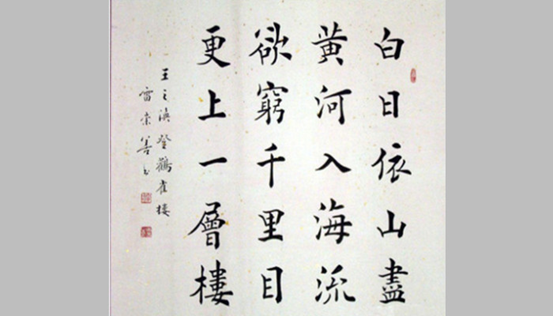 白日依山盡
黄河入海流
欲窮千里目
更上一層樓
王之渙登鸛雀樓
雷